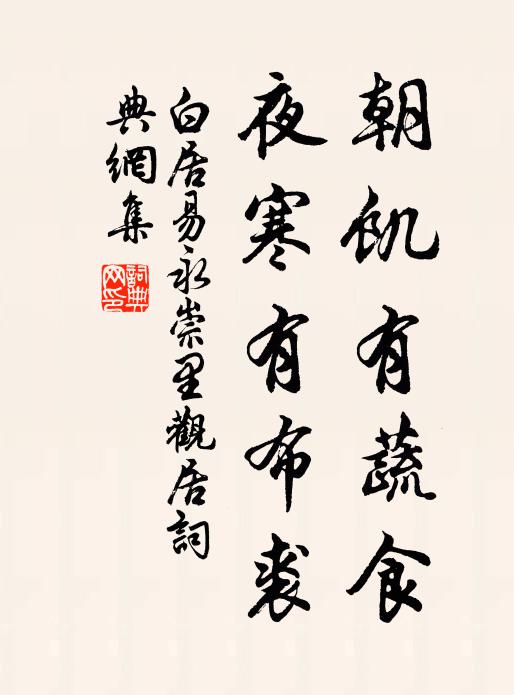 朝飢有蔬食
夜寒有布裘
白居易永崇里觀居詞
典網集
詞典網印